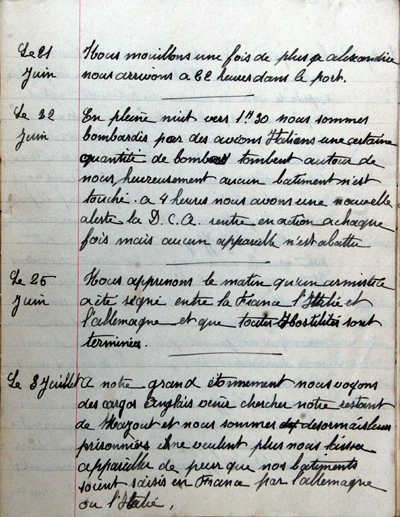 Le 21 Nous mouillons une fois de plus a alexandrie
Juin nous arrivons a 22 heures dans le port.
Le 22 En pleine nuit vers 1h30 nous sommes
Juin bombardés par des avions Italiens une certaine
quantité de bombes tombent autour de
nous heureusement aucun batiment n'est
touché. a 4 heures nous avons une nouvelle
alerte la D.C.A. rentre en action a chaque
fois mais aucun appareille n'est abattu
Le 25 Nous apprenons le matin qu'un armistice
Juin a été signé entre la France l'Italie et
l'allemagne et que toutes Hostilités sont
terminées.
Le 3 Juillet A notre grand étonnement nous voyons
des cargos Anglais venir chercher notre restant
de Mazout et nous sommes desormais leurs
prisonniers ils ne veulent plus nous laisser
appareiller de peur que nos batiments
soient saisis en France par l'allemagne
ou l'Italie,